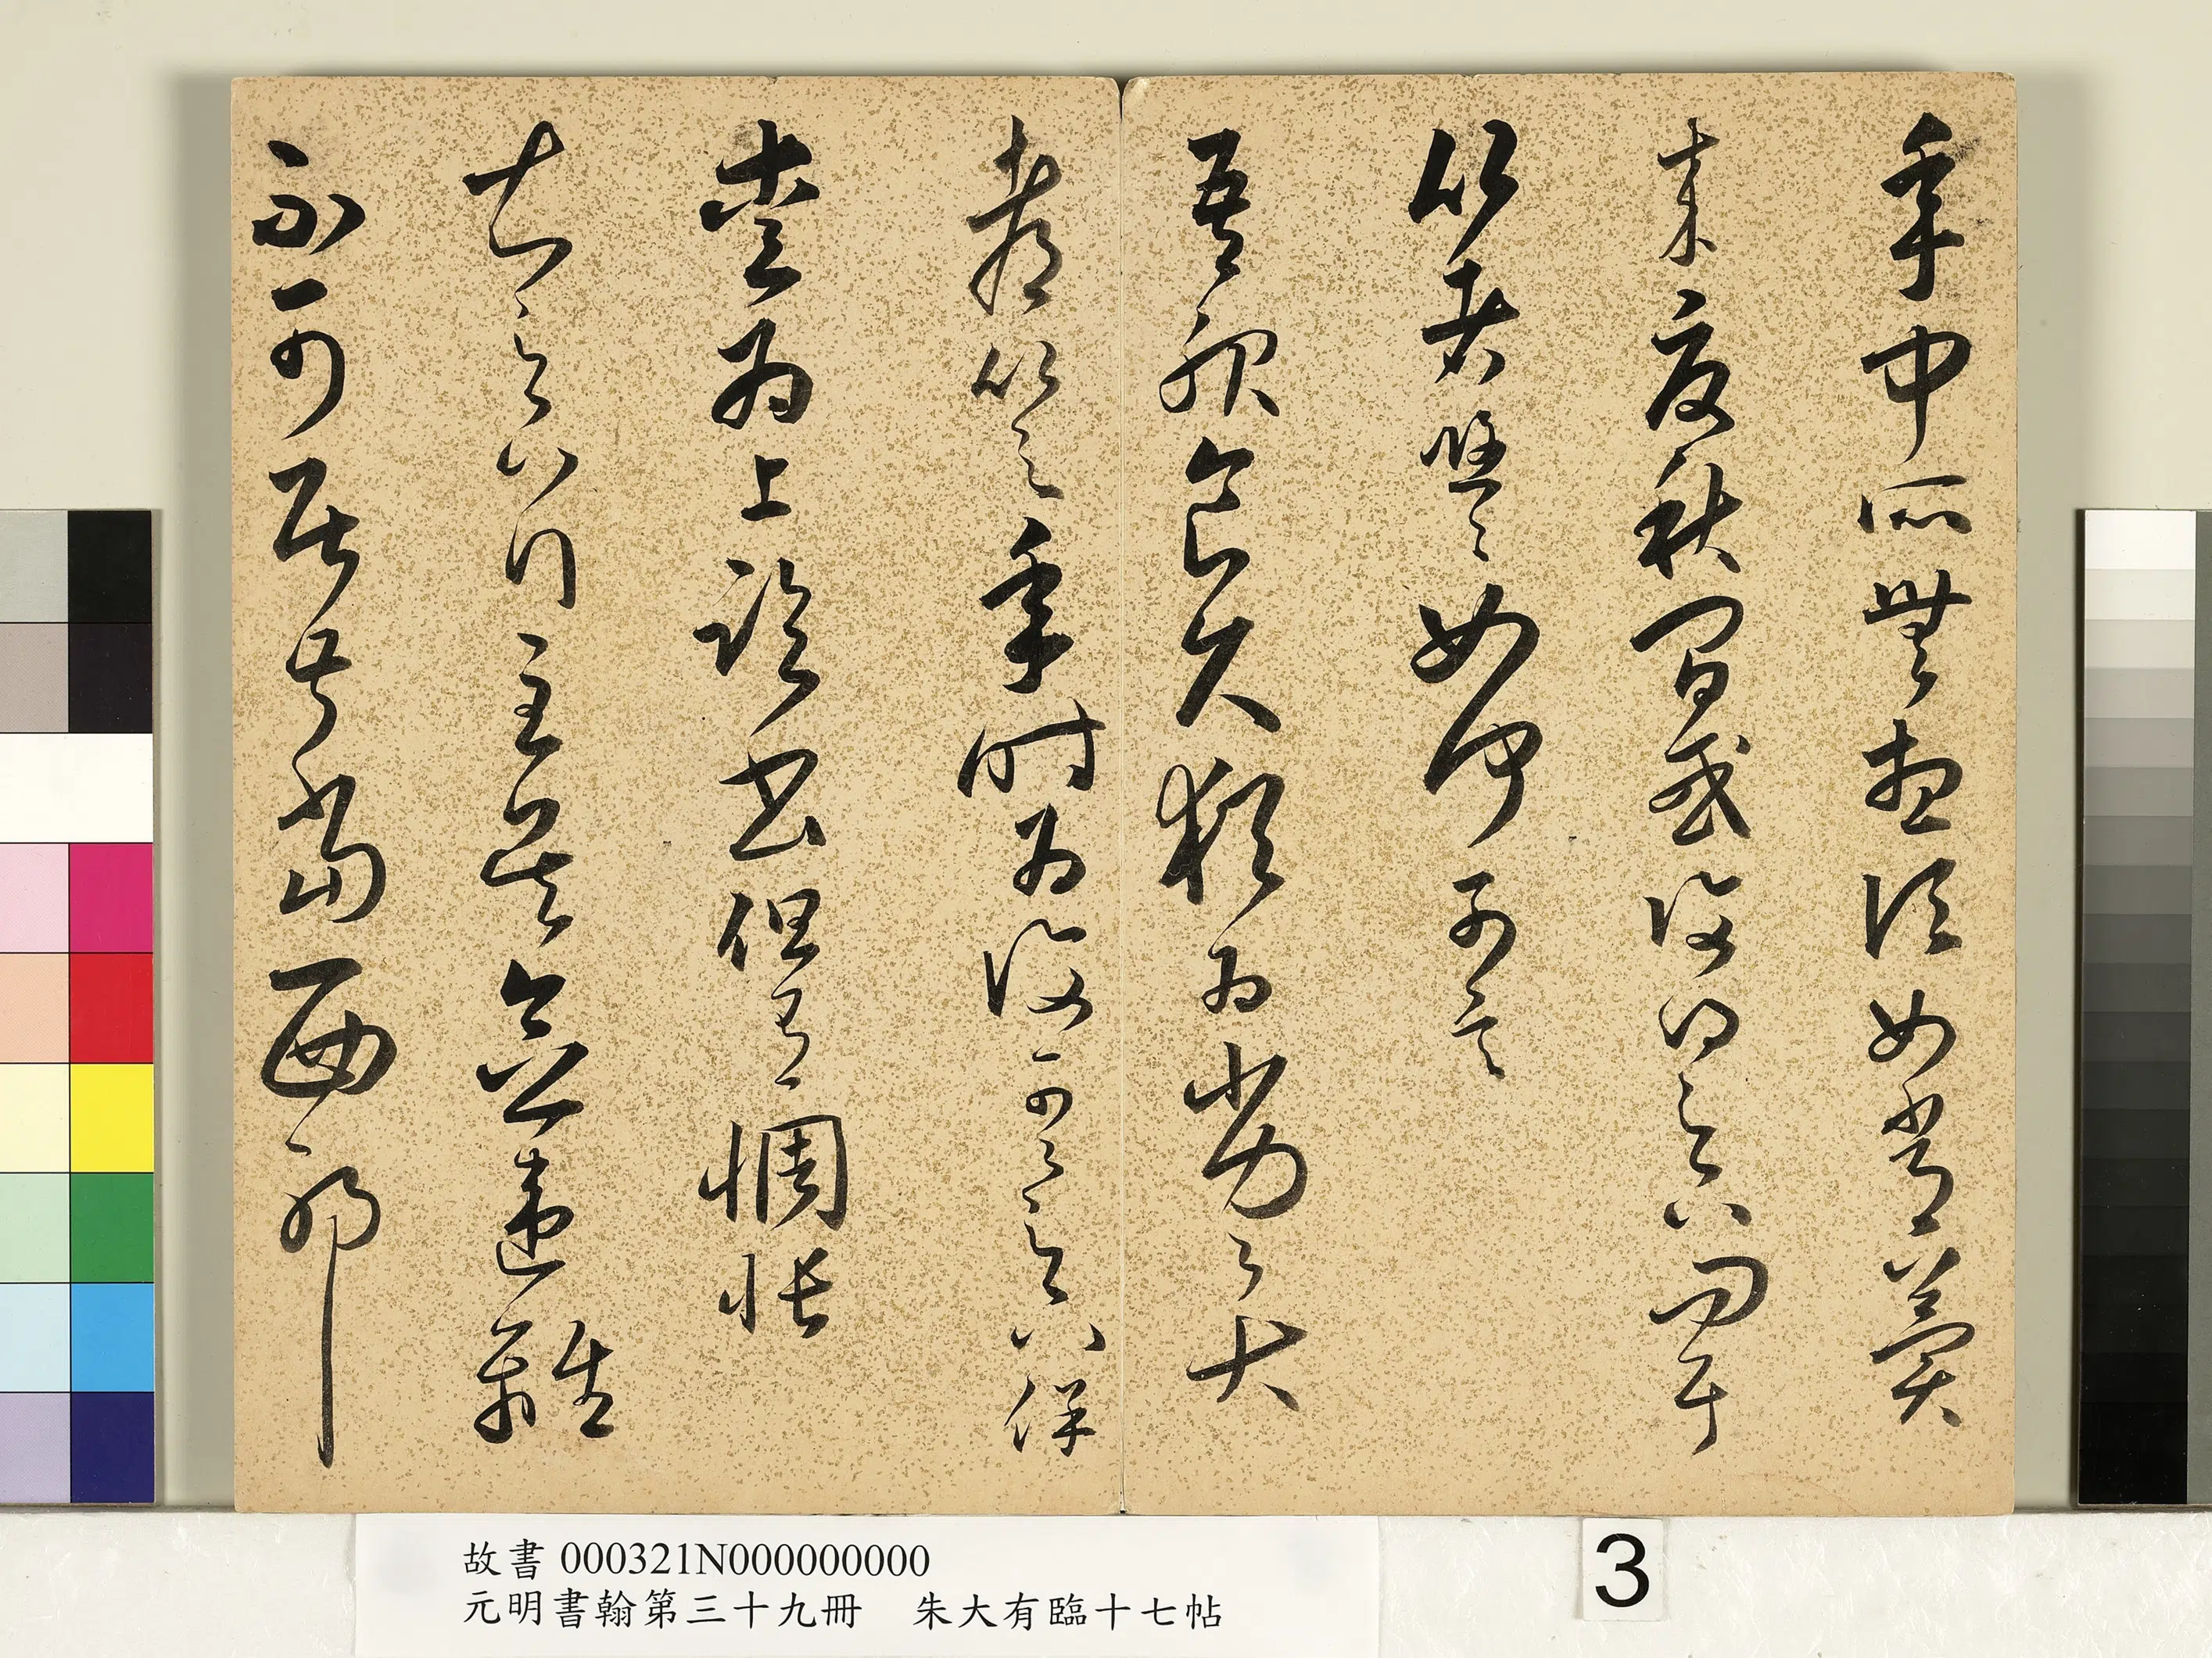 年中所無想頃如常冀
來夏秋間或復得足下問耳
比者悠悠如何可言
吾服食久猶為劣劣大
都比之年時為復可可足下保
愛為上臨書但有惆悵
知足下行至吳念違離
不可居叔當西耶
故書 000321N000000000
元明書翰第三十九冊 朱大有臨十七帖
3